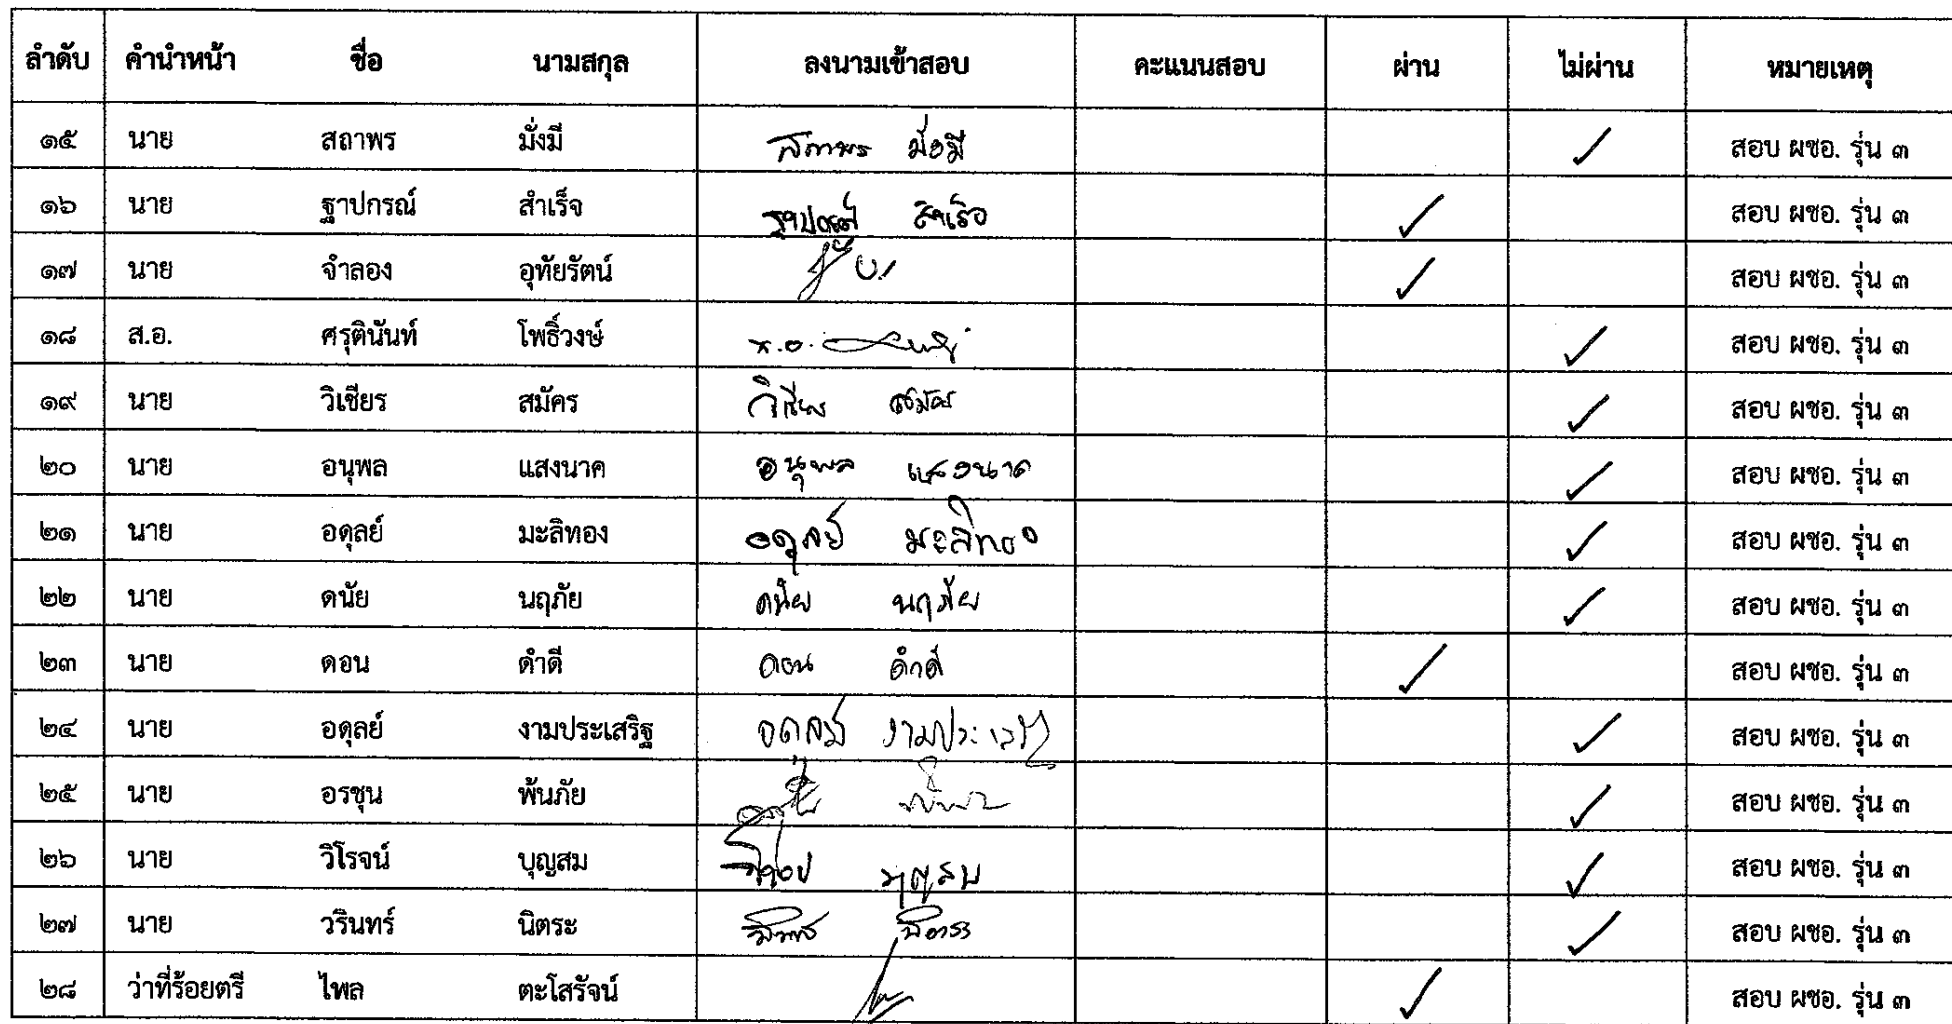 ลำดับ คำนำหน้า ชื่อ นามสกุล ลงนามเข้าสอบ คะแนนสอบ ผ่าน ไม่ผ่าน หมายเหตุ
๑๕ นาย สถาพร มั่งมี สถาพร มั่งมี ✓ สอบ ผชอ. รุ่น ๓
๑๖ นาย ฐาปกรณ์ สำเร็จ ฐาปกรณ์ สำเร็จ ✓ สอบ ผชอ. รุ่น ๓
๑๗ นาย จำลอง อุทัยรัตน์ ✓ สอบ ผชอ. รุ่น ๓
๑๘ ส.อ. ศรุตินันท์ โพธิ์วงษ์ ส.อ. ✓ สอบ ผชอ. รุ่น ๓
๑๙ นาย วิเชียร สมัคร วิเชียร สมัคร ✓ สอบ ผชอ. รุ่น ๓
๒๐ นาย อนุพล แสงนาค อนุพล แสงนาค ✓ สอบ ผชอ. รุ่น ๓
๒๑ นาย อดุลย์ มะลิทอง อดุลย์ มะลิทอง ✓ สอบ ผชอ. รุ่น ๓
๒๒ นาย ดนัย นฤภัย ดนัย นฤภัย ✓ สอบ ผชอ. รุ่น ๓
๒๓ นาย ดอน ดำดี ดอน ดำดี ✓ สอบ ผชอ. รุ่น ๓
๒๔ นาย อดุลย์ งามประเสริฐ อดุลย์ งามประเสริฐ ✓ สอบ ผชอ. รุ่น ๓
๒๕ นาย อรชุน พ้นภัย ✓ สอบ ผชอ. รุ่น ๓
๒๖ นาย วิโรจน์ บุญสม บุญสม ✓ สอบ ผชอ. รุ่น ๓
๒๗ นาย วรินทร์ นิตระ ✓ สอบ ผชอ. รุ่น ๓
๒๘ ว่าที่ร้อยตรี ไพล ตะโสรัจน์ ✓ สอบ ผชอ. รุ่น ๓